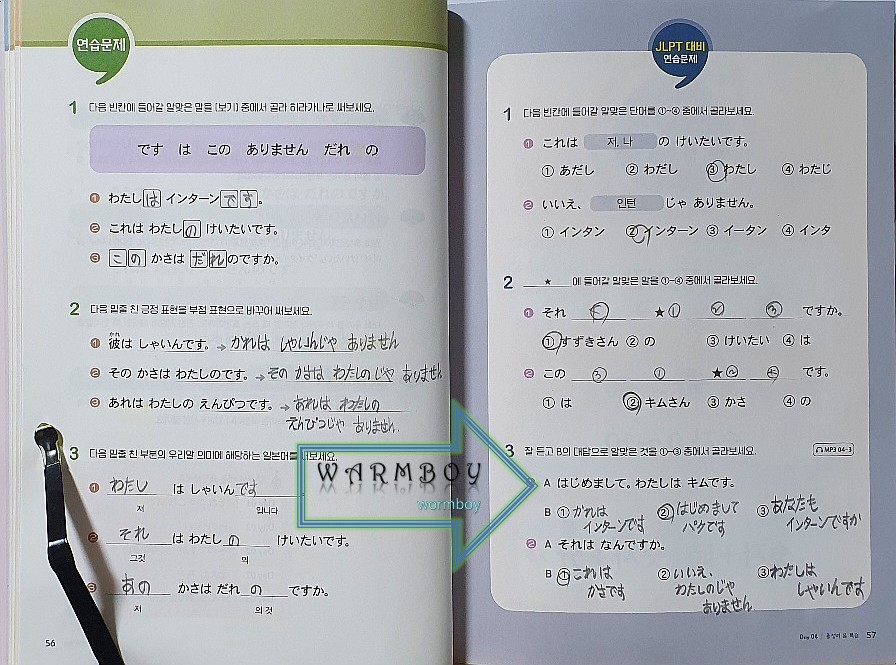 연습문제
1 다음 빈칸에 들어갈 알맞은 말을 [보기] 중에서 골라 히라가나로 써보세요.
です は この ありません だれ の
❶ わたし は インターン です。
❷ これは わたし の けいたいです。
❸ この かさは だれ のですか。
2 다음 밑줄 친 긍정 표현을 부정 표현으로 바꾸어 써보세요.
かれ
❶ 彼は しゃいんです。→ かれは しゃいんじゃ ありません
❷ その かさは わたしのです。→ その かさは わたしのじゃ ありません
❸ あれは わたしの えんぴつです。→ あれは わたしの
えんぴつじゃ ありません.
3 다음 밑줄 친 부분의 우리말 의미에 해당하는 일본어를 써보세요.
❶ わたし は しゃいん です
저 입니다
❷ それ は わたし の けいたいです。
그것 의
❸ あの かさは だれ の ですか。
저 의 것
56
JLPT 대비
연습문제
1 다음 빈칸에 들어갈 알맞은 단어를 ①~④ 중에서 골라보세요.
❶ これは 저, 나 の けいたいです。
① あだし ② わだし ③ わたし ④ わたじ
❷ いいえ、 인턴 じゃ ありません。
① インタン ② インターン ③ イータン ④ インタ
2 ★ 에 들어갈 알맞은 말을 ①~④ 중에서 골라보세요.
❶ それ ④ ★ ① ② ③ ですか。
① すずきさん ② の ③ けいたい ④ は
❷ この ③ ① ★ ② ④ です。
① は ② キムさん ③ かさ ④ の
3 잘 듣고 B의 대답으로 알맞은 것을 ①~③ 중에서 골라보세요. MP3 04-3
❶ A はじめまして。わたしは キムです。
B ① かれは ② はじめまして ③ あなたも
インターンです パクです インターンですか
❷ A それは なんですか。
B ① これは ② いいえ、 ③ わたしは
かさです わたしのじゃ しゃいんです
ありません
Day 04 57
WARMBOY
wormboy